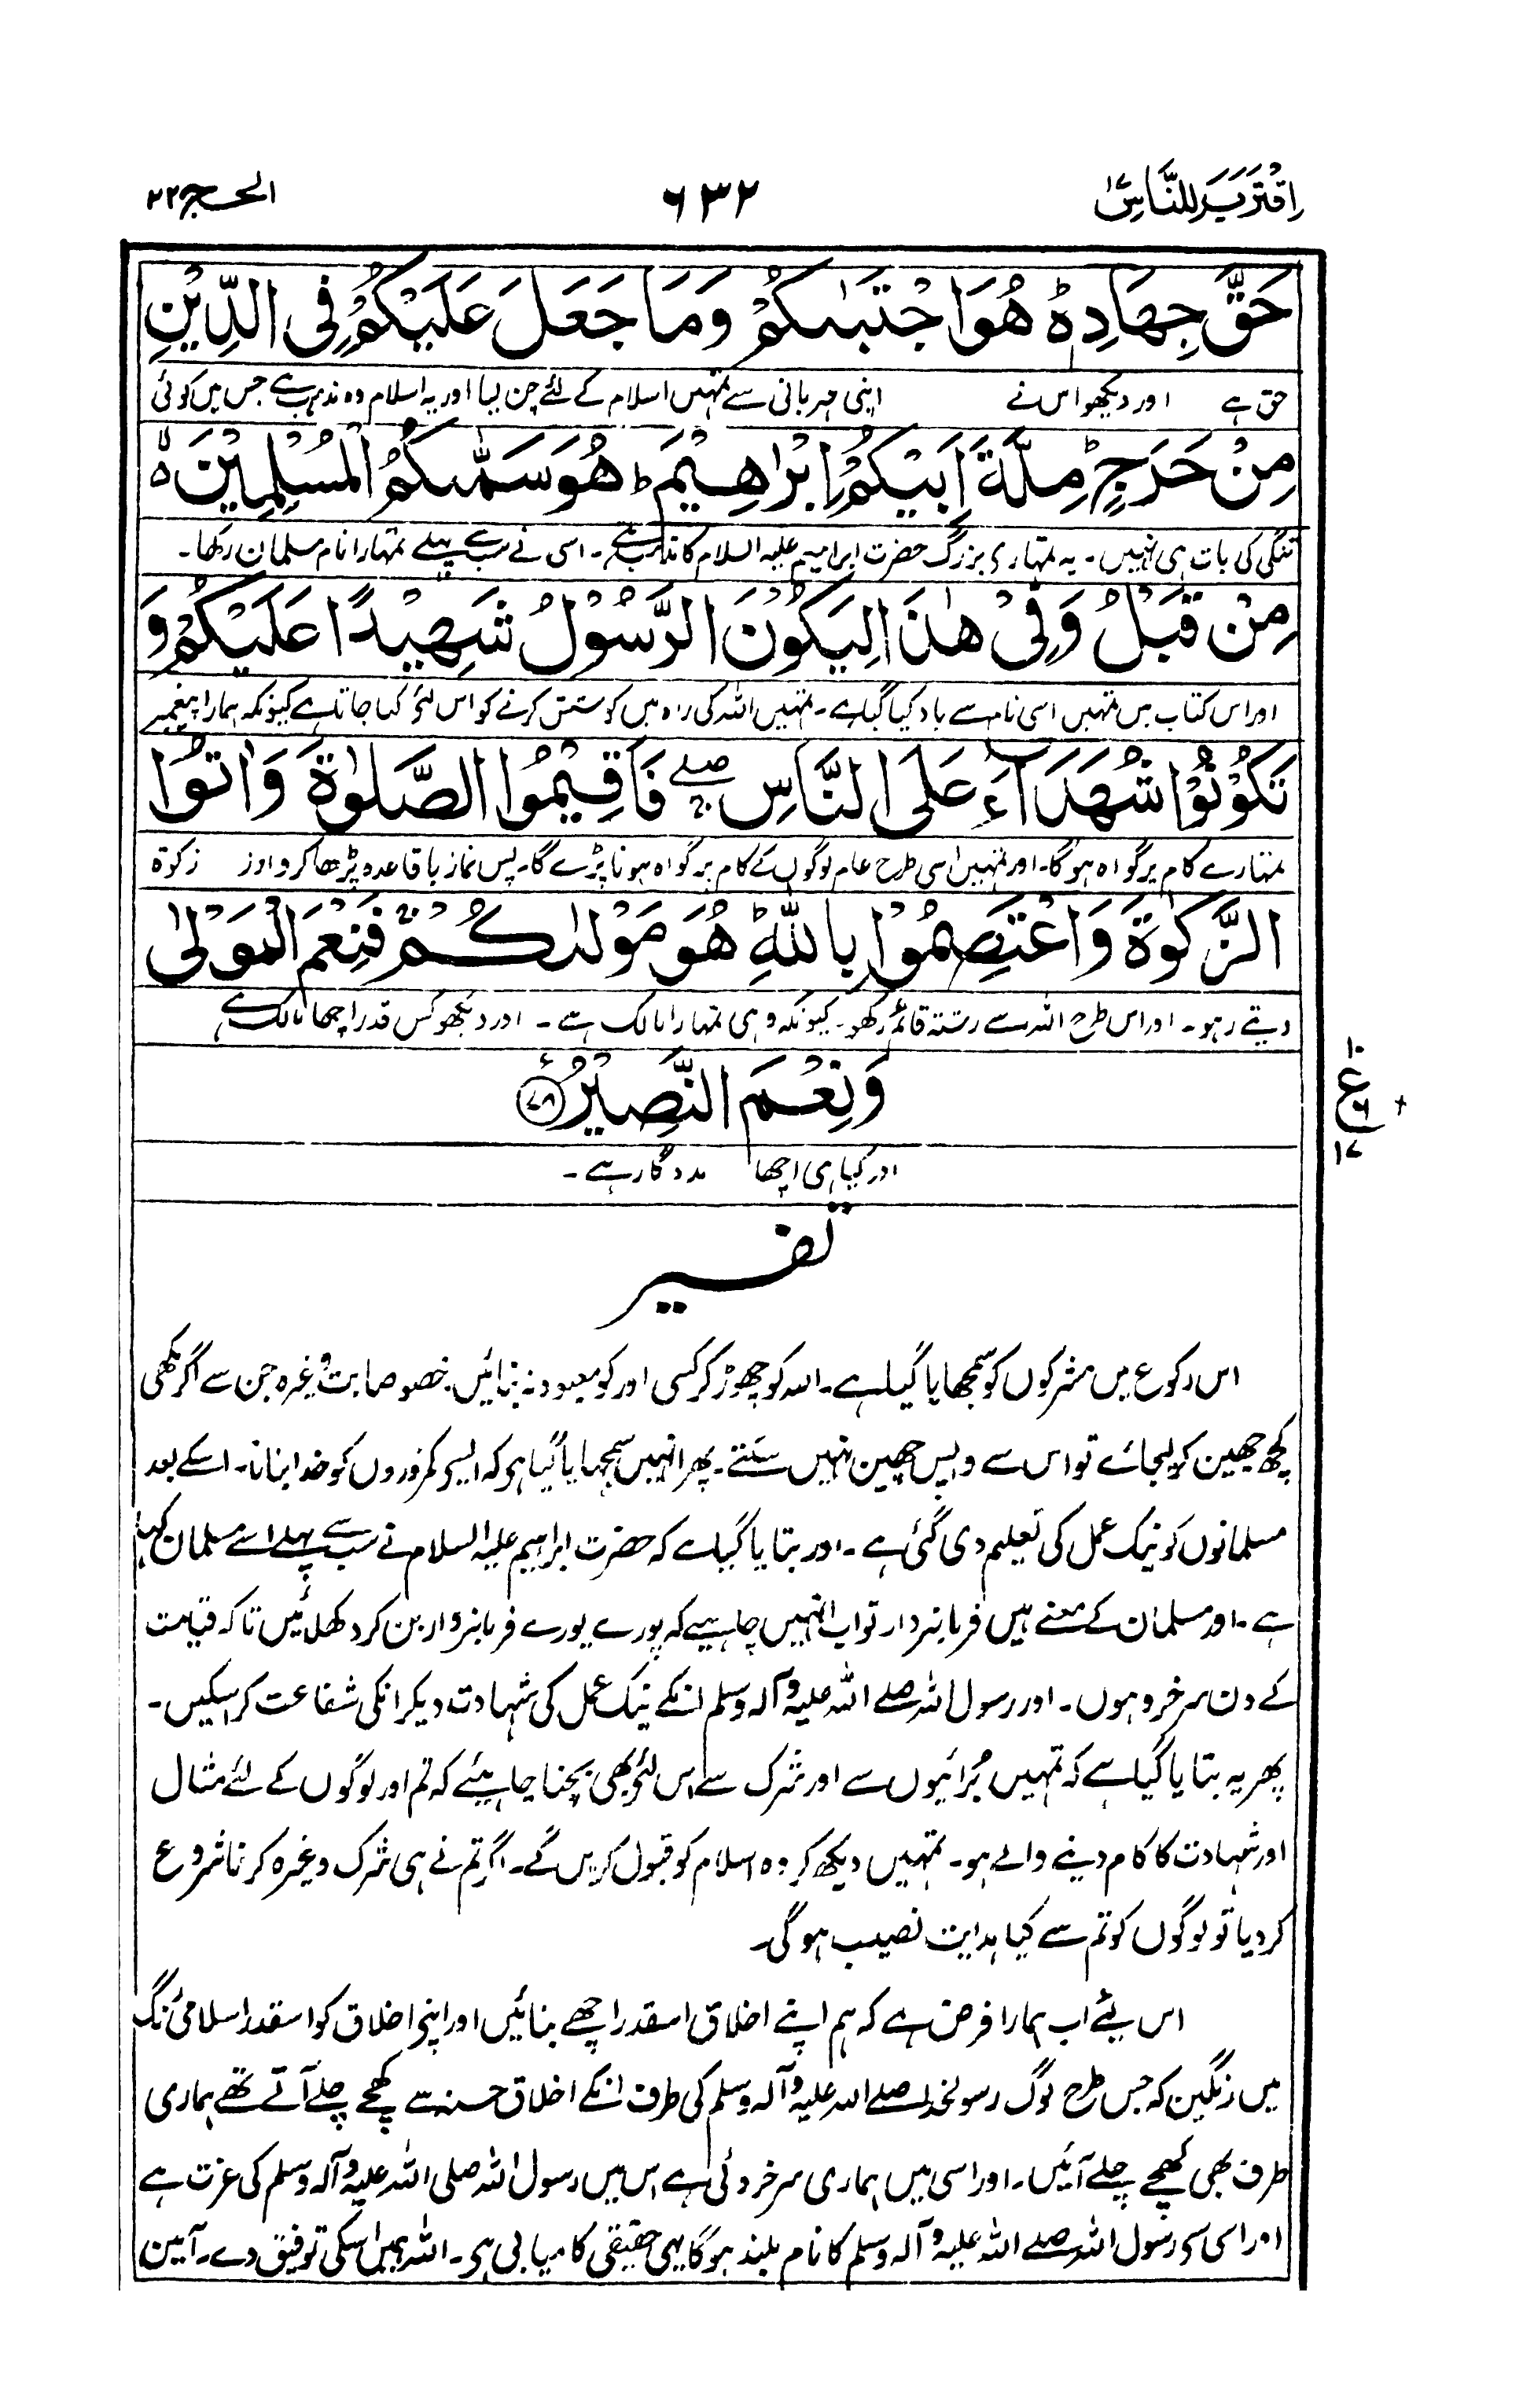 اِقْتَرَبَ لِلنَّاسِ ١٧
٦٣٢
الحج ٢٢
حَقَّ جِهَادِهٖ ؕ هُوَ اجْتَبٰىكُمْ وَمَا جَعَلَ عَلَيْكُمْ فِى الدِّيْنِ
حق ہے اور دیکھو اس نے اپنی مہربانی سے تمہیں اسلام کے لئے چن لیا اور یہ اسلام وہ مذہب ہے جس میں کوئی
مِنْ حَرَجٍ ؕ مِلَّةَ اَبِيْكُمْ اِبْرٰهِيْمَ ؕ هُوَ سَمّٰىكُمُ الْمُسْلِمِيْنَ ۙ
تنگی کی بات ہی نہیں۔ یہ تمہاری بزرگ حضرت ابراہیم علیہ السلام کا مذہب ہے۔ اسی نے سب سے پہلے تمہارا نام مسلمان رکھا۔
مِنْ قَبْلُ وَفِىْ هٰذَا لِيَكُوْنَ الرَّسُوْلُ شَهِيْدًا عَلَيْكُمْ وَ
اور اس کتاب میں تمہیں اسی نام سے یاد کیا گیا ہے۔ تمہیں اللہ کی راہ میں کوشش کرنے کو اس لئے کہا جاتا ہے کیونکہ ہمارا پیغمبر
تَكُوْنُوْا شُهَدَآءَ عَلَى النَّاسِ ۖۚ فَاَقِيْمُوا الصَّلٰوةَ وَاٰتُوا
تمہارے کام پر گواہ ہوگا۔ اور تمہیں اسی طرح عام لوگوں کے کام پر گواہ ہونا پڑے گا۔ پس نماز باقاعدہ پڑھا کرو اور زکوٰۃ
الزَّكٰوةَ وَاعْتَصِمُوْا بِاللّٰهِ ؕ هُوَ مَوْلٰىكُمْ ۚ فَنِعْمَ الْمَوْلٰى
دیتے رہو۔ اور اس طرح اللہ سے رشتہ قائم رکھو۔ کیونکہ وہی تمہارا مالک ہے۔ اور دیکھو کس قدر اچھا مالک ہے
وَنِعْمَ النَّصِيْرُ ٧٨
١٠
ع
٦
١٧
اور کیا ہی اچھا مددگار ہے۔
تفسیر
اس رکوع میں مشرکوں کو سمجھایا گیا ہے۔ اللہ کو چھوڑ کر کسی اور کو معبود نہ بنائیں۔ خصوصا بت وغیرہ جن سے اگر مکھی
کچھ چھین کر لیجائے تو اس سے واپس چھین نہیں سکتے۔ پھر انہیں سمجہایا گیا ہی کہ ایسی کمزوروں کو خدا بنانا۔ اسکے بعد
مسلمانوں کو نیک عمل کی تعلیم دی گئی ہے۔ اور بتایا گیا ہے کہ حضرت ابراہیم علیہ السلام نے سب سے پہلے اسے مسلمان کہا
ہے۔ اور مسلمان کے معنے ہیں فرمانبردار تو اب انہیں چاہیے کہ پورے پورے فرمانبردار بن کر دکھلائیں تاکہ قیامت
کے دن سرخرو ہوں۔ اور رسول اللہ صلے اللہ علیہ وآلہ وسلم انکے نیک عمل کی شہادت دیکر انکی شفاعت کر سکیں۔
پھر یہ بتایا گیا ہے کہ تمہیں بُرائیوں سے اور شرک سے اس لئے بھی بچنا چاہیئے کہ تم اور لوگوں کے لئے مثال
اور شہادت کا کام دینے والے ہو۔ تمہیں دیکھ کر وہ اسلام کو قبول کریں گے۔ اگر تم نے ہی شرک وغیرہ کرنا شروع
کر دیا تو لوگوں کو تم سے کیا ہدایت نصیب ہوگی۔
اس لیے اب ہمارا فرض ہے کہ ہم اپنے اخلاق اسقدر اچھے بنائیں اور اپنی اخلاق کو اسقدر اسلامی رنگ
میں رنگین کہ جس طرح لوگ رسولخدا صلے اللہ علیہ وآلہ وسلم کی طرف انکے اخلاق حسنہ سے کھچے چلے آتے تھے ہماری
طرف بھی کھچے چلے آئیں۔ اور اسی میں ہماری سرخروئی ہے اس میں رسول اللہ صلی اللہ علیہ وآلہ وسلم کی عزت ہے
اور اسی سی رسول اللہ صلے اللہ علیہ وآلہ وسلم کا نام بلند ہوگا یہی حقیقی کامیابی ہی۔ اللہ ہمیں اسکی توفیق دے۔ آمین